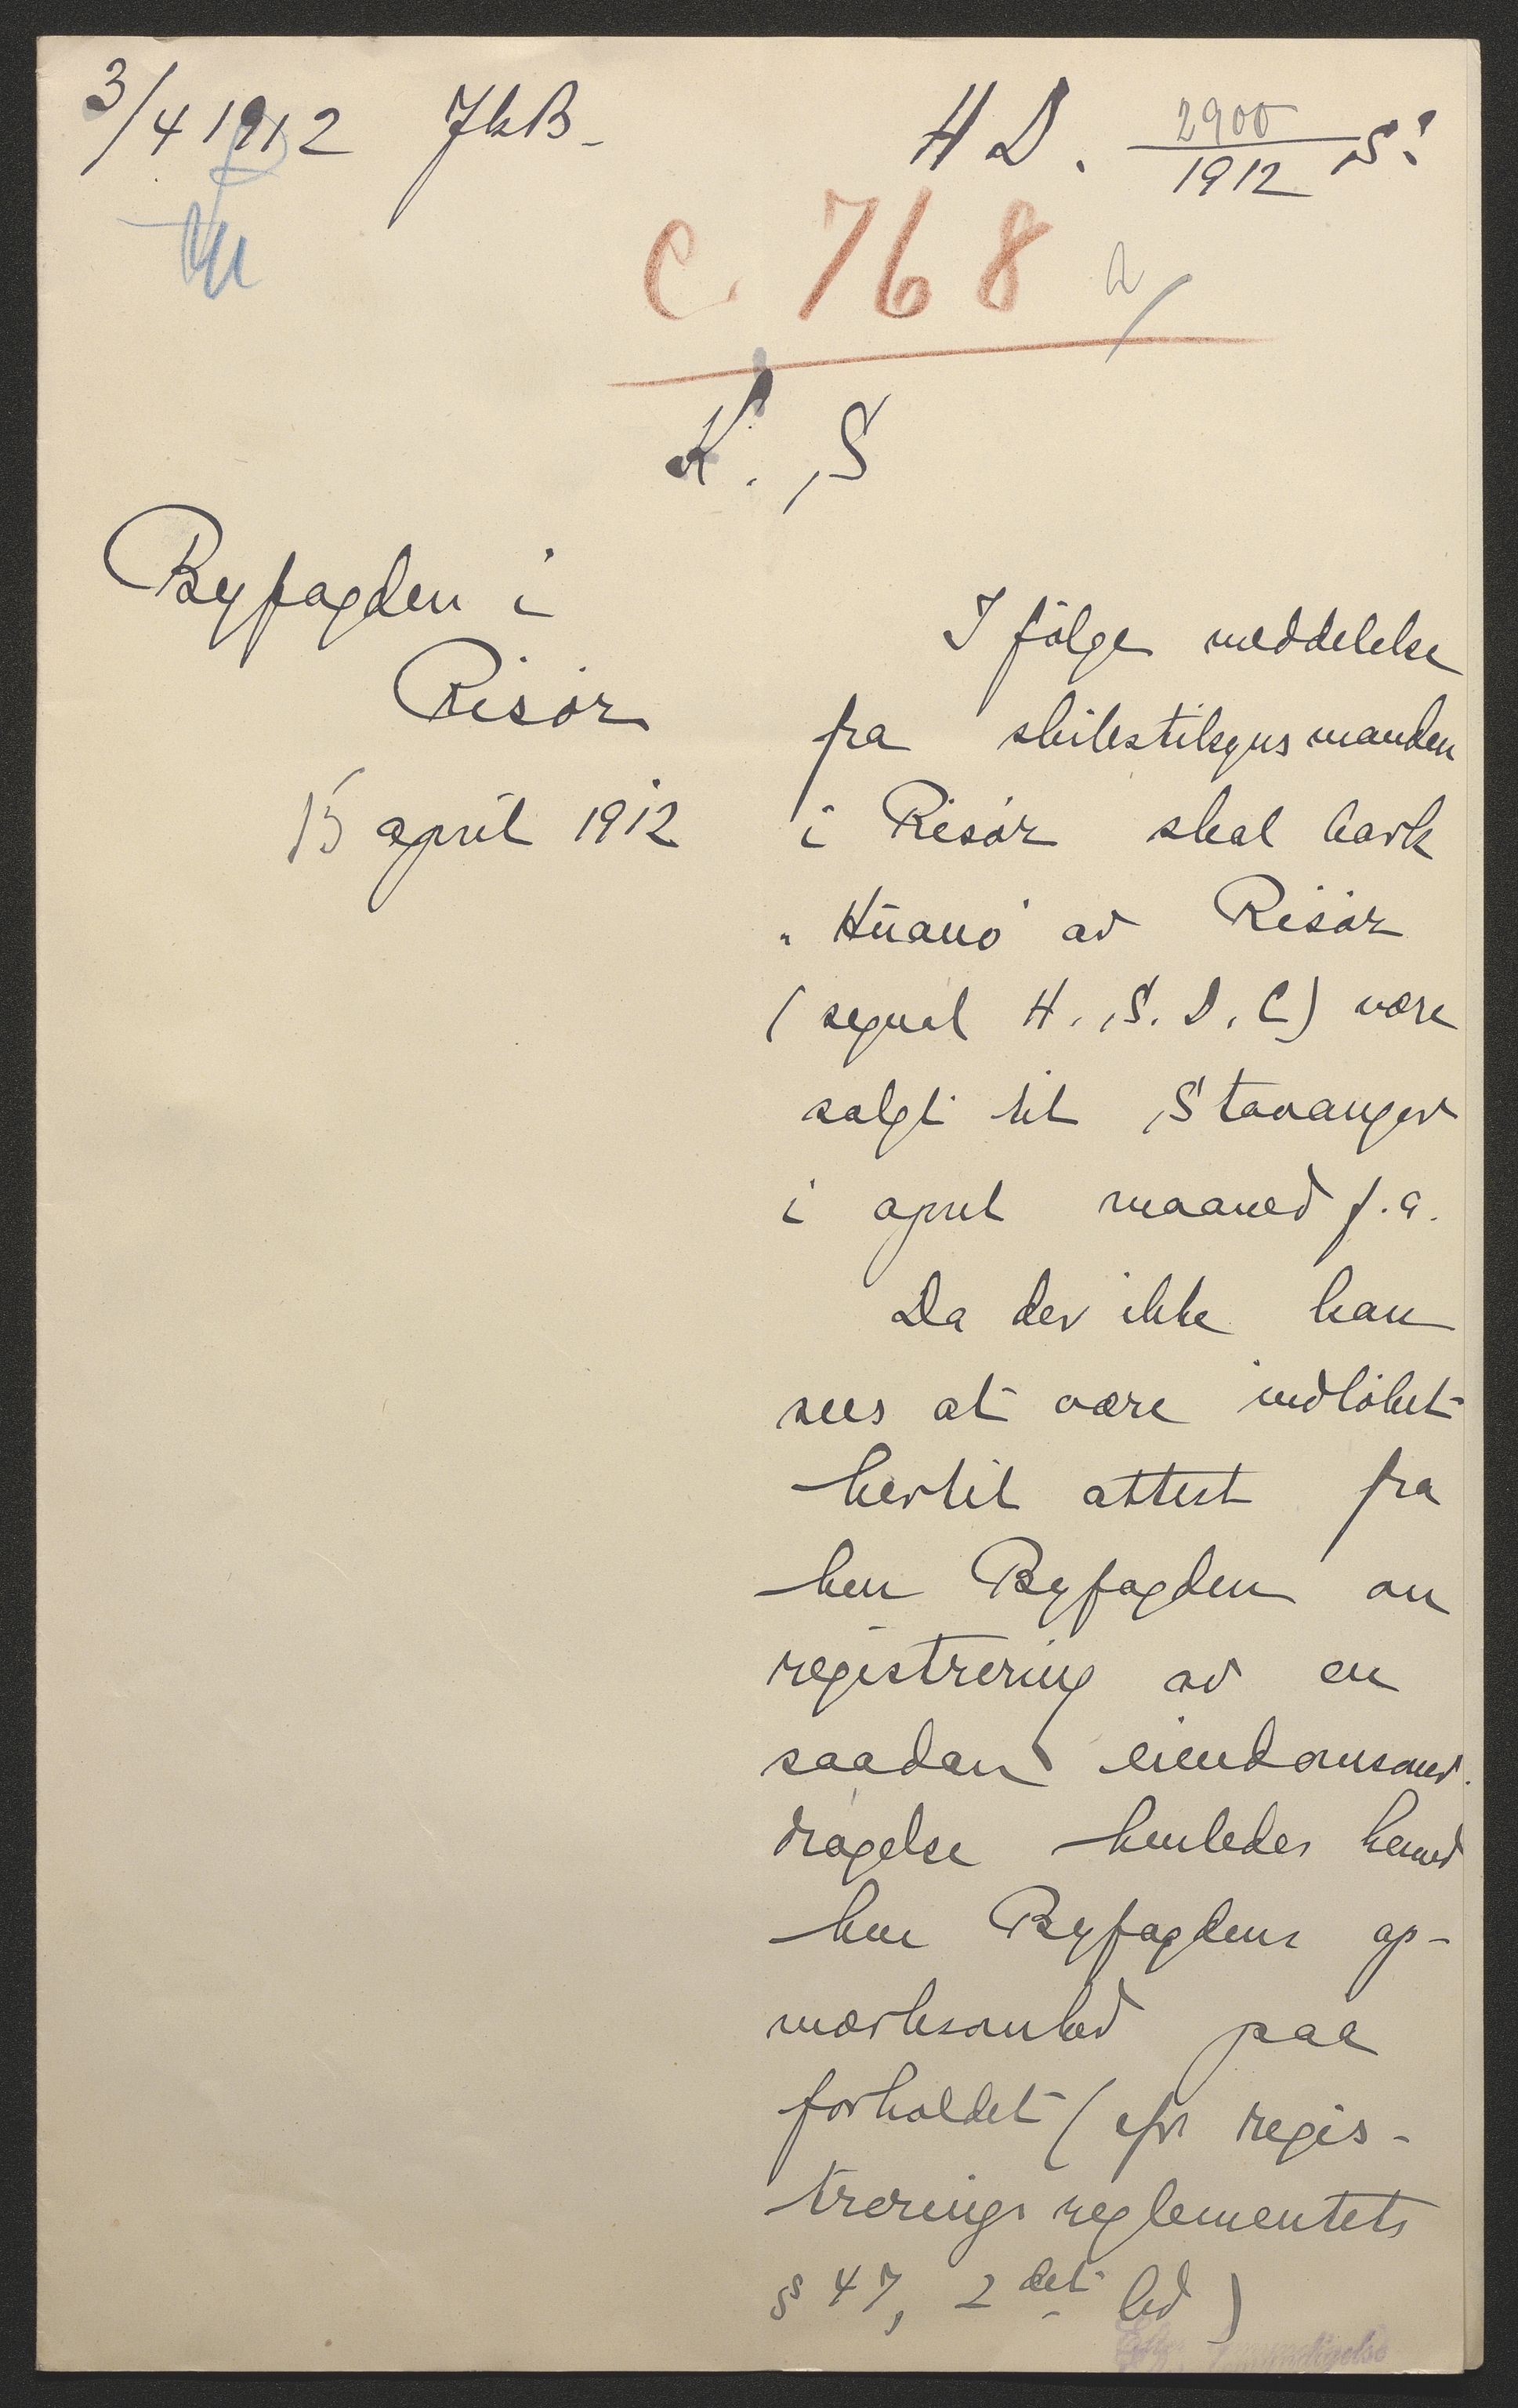 3/4 1912 JkB-
H D. 2900/1912 S:
C. 768 a/
K. S
Byfogden i
Risör
15 april 1912
I fölge meddelelse
fra skibstilsynsmanden
i Risör skal bark
"Huano" av Risör
(segnal H. S. D. C) være
solgt til Stavanger
i april maaned f. a.
Da der ikke kan
sees at være indlöbet
hertil attest fra
herr Byfogden om
registrering av en
saadan eiendomsover-
dragelse henledes herved
herr Byfogdens op-
merksomhed paa
forholdet (cfr regis-
trerings reglementets
§ 47, 2det led)